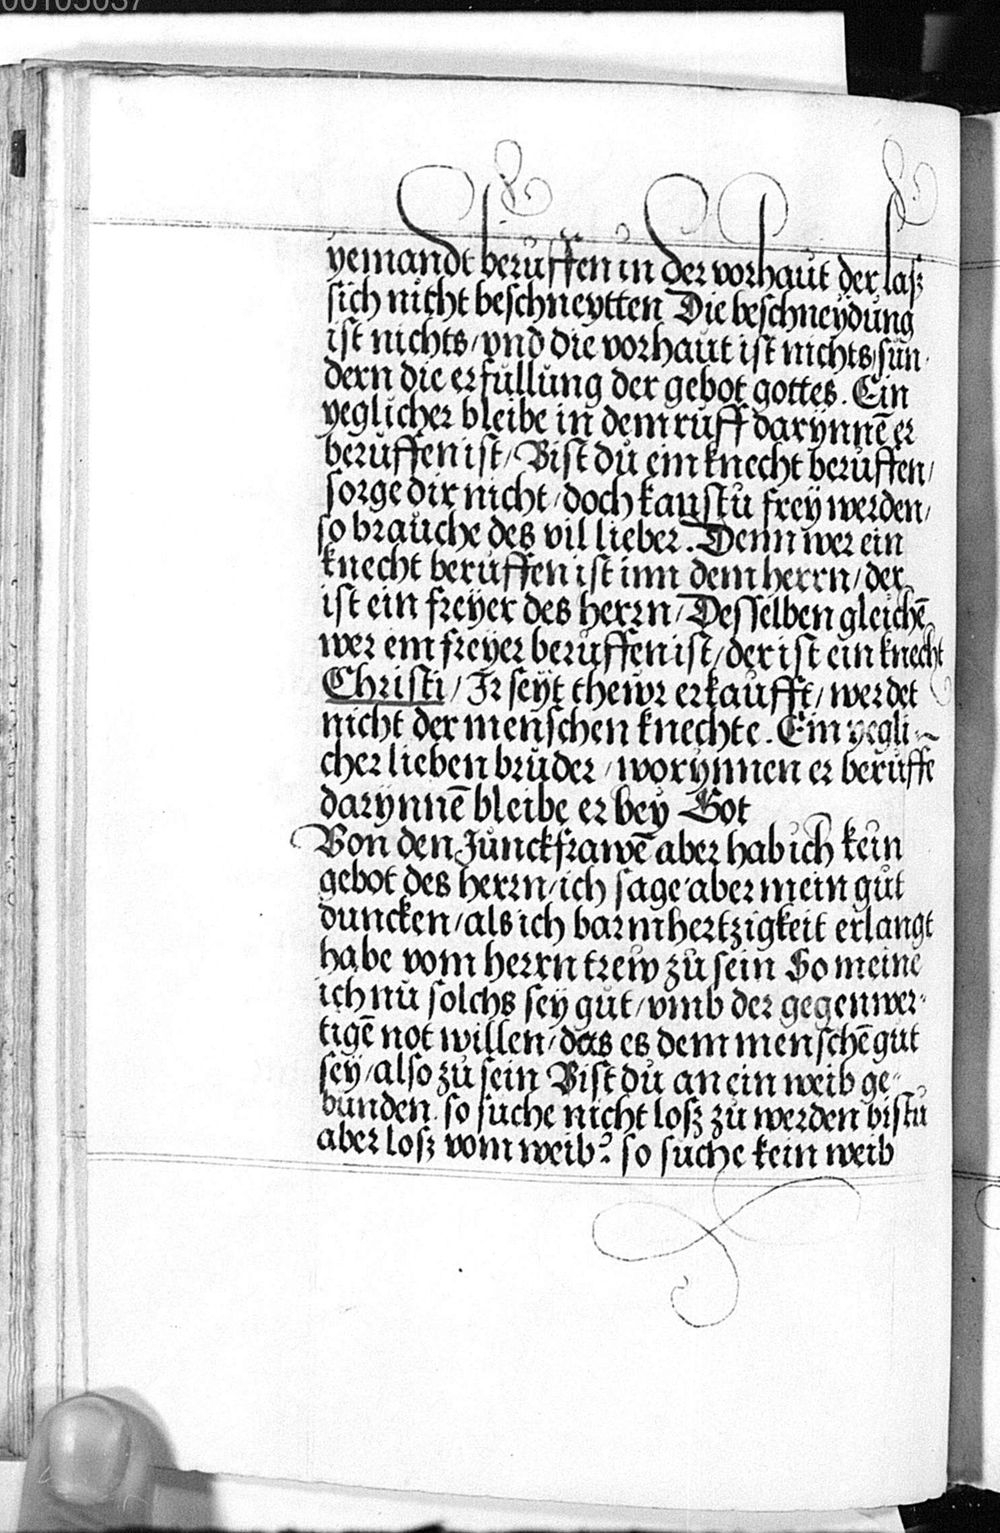 00105037
yemandt beruffen in der vorhaut der laß
sich nicht beschneytten Die beschneydung
ist nichts/vnd die vorhaut ist nichts/sun-
dern die erfullung der gebot gottes. Ein
yeglicher bleibe in dem ruff darynnē er
beruffen ist/Bist du ein knecht beruffen/
sorge dir nicht/doch kanstu frey werden/
so brauche des vil lieber. Denn wer ein
knecht beruffen ist inn dem herrn/der
ist ein freyer des herrn/Desselben gleichē
wer ein freyer beruffen ist/der ist ein knecht
Christi/Ir seyt thewr erkaufft/werdet
nicht der menschen knechte. Ein yegli-
cher lieben bruder/worynnen er beruffe
darynnē bleibe er bey Got
Von den Junckfrawē aber hab ich kein
gebot des herrn/ich sage aber mein gut
duncken/als ich barmhertzigkeit erlangt
habe vom herrn trew zu sein So meine
ich nu solchs sey gut/vmb der gegenwer-
tigē not willen/das es dem menschē gut
sey/also zu sein Bist du an ein weib ge-
bunden. so suche nicht loß zu werden bistu
aber loß vom weib? so suche kein weib